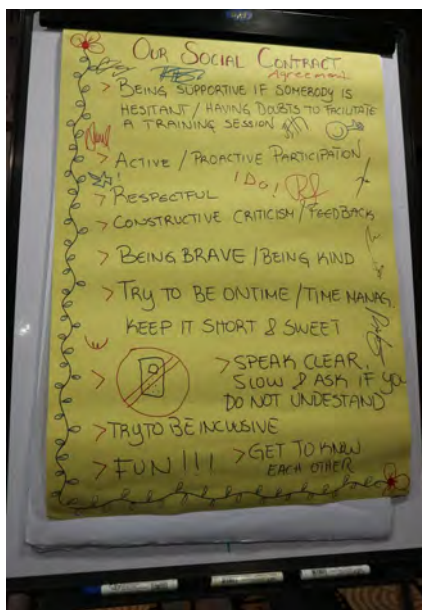 OUR SOCIAL CONTRACT
Agreement
> BEING SUPPORTIVE IF SOMEBODY IS
HESITANT / HAVING DOUBTS TO FACILITATE
A TRAINING SESSION
> ACTIVE / PROACTIVE PARTICIPATION
I DO!
> RESPECTFUL
> CONSTRUCTIVE CRITICISM / FEEDBACK
> BEING BRAVE / BEING KIND
> TRY TO BE ONTIME / TIME MANAG.
KEEP IT SHORT & SWEET
> SPEAK CLEAR,
SLOW & ASK IF YOU
DO NOT UNDESTAND
> TRY TO BE INCLUSIVE
> FUN!!!
> GET TO KNOW
EACH OTHER